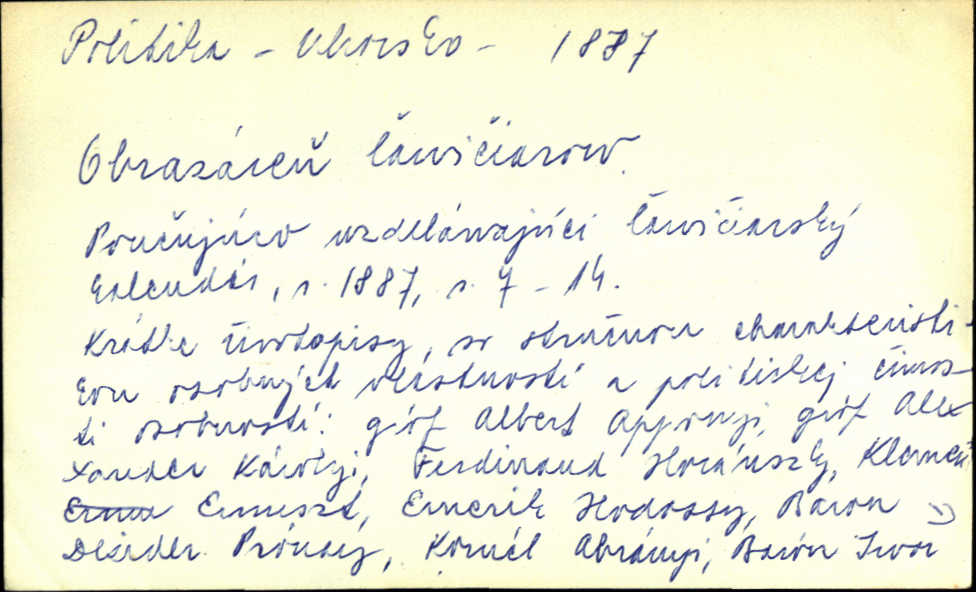 Politika - Uhorsko - 1887
Obrazáreň čarvičiarow.
Poučujúco vzdelávajúci
kalendár, r. 1887, s. 7 - 14.
Krátke životopisy, so stručnou charakteristi-
kou osobných vlastností a politickej činnos-
ti osobností: gróf Albert Apponyi, gróf Alex-
xander Károlyi, Ferdinand Horánszky, Klement
Ernuszt, Emerik Hodossy, Baron
Dezider Prónay, Kornél Ábrányi, Barón Ivor